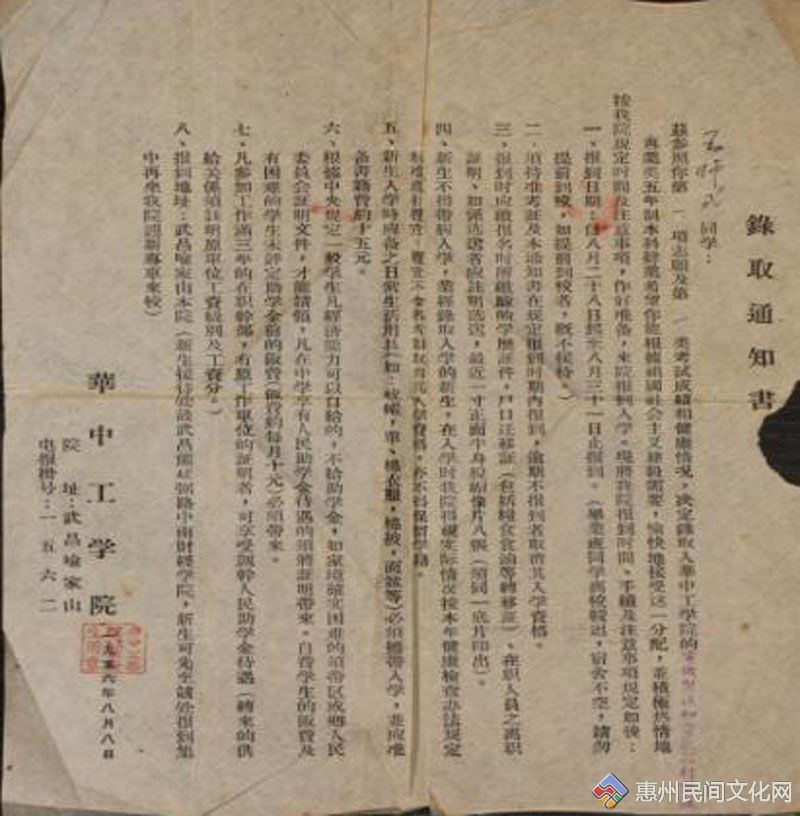 錄取通知書
同学：
兹参照你第一項志願及第一类考試成績和健康情况，决定錄取入華中工学院的
專業类五年制本科肄業希望你能根據祖國社会主义建設需要，愉快地接受这一分配，並積極热情地
按我院規定时間及注意事項，作好准备，来院报到入学。現將我院报到时間、手續及注意事項規定如後：
一、报到日期：自八月二十八日起至八月三十一日止报到。（畢業班同学离校較迟，宿舍不空，請勿
提前到校，如提前到校者，概不接待。）
二、須持准考証及本通知書在規定报到时期內报到，逾期不报到者取消其入学資格。
三、报到时应繳报名时所繳驗的学歷証件，戶口迁移証（包括糧食食油等轉移証）、在职人員之离职
証明、如係选送者应註明选送，最近一寸正面半身脫帽像片八張（須同一底片印出）。
四、新生不得帶病入学，業經錄取入学的新生，在入学时我院得視实际情况按本年健康檢查办法規定
五、新生入学時应备之日常生活用具（如：蚊帳，單、棉衣服，棉被，面盆等）必須攜帶入学，並应准
备書籍費約十五元。
六、根據中央規定一般学生凡經济能力可以自給的，不給助学金，如家境確实困难的須带区或鄉人民
委員会証明文件，才能請領，凡在中学享有人民助学金待遇的須將証明帶来。自費学生的飯費及
有困难的学生未評定助学金前的飯費（飯費約每月十元）必須帶来。
七、凡参加工作滿三年的在职幹部，有原工作單位的証明者，可享受調幹人民助学金待遇（轉来的供
給关係須註明原單位工資級別及工資分。）
八、报到地址：武昌喻家山本院（新生接待处設武昌
中南財經学院，新生可先至該处报到集
中再坐我院迎新專車来校）
華中工学院
一九五六年八月八日
院址：武昌喻家山
电报掛号：一五六二
惠州民间文化网